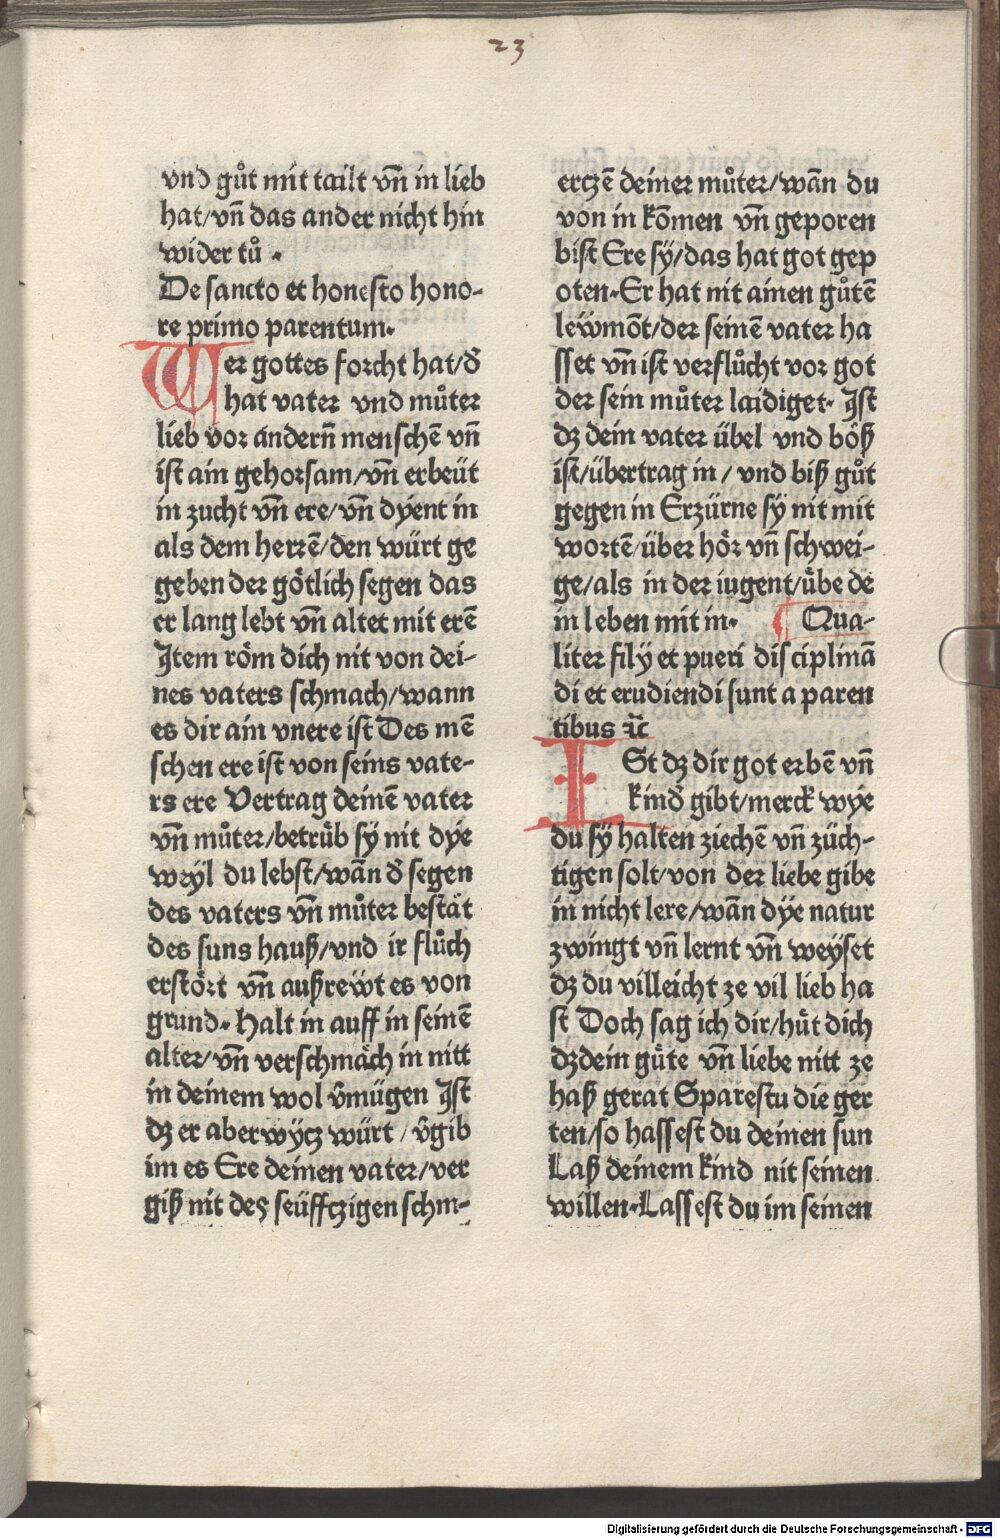 23
vnd gůt mit tailt vn̄ in lieb
hat/vn̄ das ander nicht hin
wider tů .
De sancto et honesto hono-
re primo parentum.
Wer gottes forcht hat/d̄
hat vater vnd můter
lieb vor andern̄ menschē vn̄
ist ain gehorsam/vn̄ erbeüt
in zucht vn̄ ere/vn̄ dyent in
als dem herrē/den würt ge
geben der götlich segen das
er lang lebt vn̄ altet mit erē
Item röm dich nit von dei-
nes vaters schmach/wann
es dir ain vnere ist Des mē
schen ere ist von seins vate-
rs ere Vertrag deinē vater
vn̄ můter/betrůb sÿ nit dÿe
weÿl du lebst/wān d̄ segen
des vaters vn̄ můter bestāt
des suns hauß/vnd ir flůch
erstört vn̄ außrewt es von
grund. Halt in auff in seinē
alter/vn̄ verschmäch in nitt
in deinem wol v̄mügen Ist
dʒ er aberwÿcʒ würt/v̄gib
im es Ere deinen vater/ver
giß nit des seüffcʒigen schm-
ercʒē deiner můter/wān du
von in kōmen vn̄ geporen
bist Ere sÿ/das hat got gep
oten.Er hat nit ainen gůtē
lewmōt/der seinē vater ha
sset vn̄ ist verflůcht vor got
der sein můter laidiget. Ist
dʒ dein vater übel vnd böß
ist/übertrag in/vnd biß gůt
gegen in Erzürne sÿ nit mit
wortē/über hör vn̄ schwei-
ge/als in der iugent/übe de
in leben mit in. Qua-
liter filÿ et pueri disciplinā
di et erudiendi sunt a paren
tibus ꝛc̄
ISt dʒ dir got erbē vn̄
kind̄ gibt/merck wÿe
du sÿ halten ziechē vn̄ züch-
tigen solt/von der liebe gibe
in nicht lere/wān dÿe natur
zwingt vn̄ lernt vn̄ weÿset
dʒ du villeicht ze vil lieb ha
st Doch sag ich dir/hüt dich
dʒdein güte vn̄ liebe nitt ze
haß gerat Sparestu die ger
ten/so hassest du deinen sun
Laß deinem kind nit seinen
willen.Lassest du im seinen
Digitalisierung gefördert durch die Deutsche Forschungsgemeinschaft - DFG